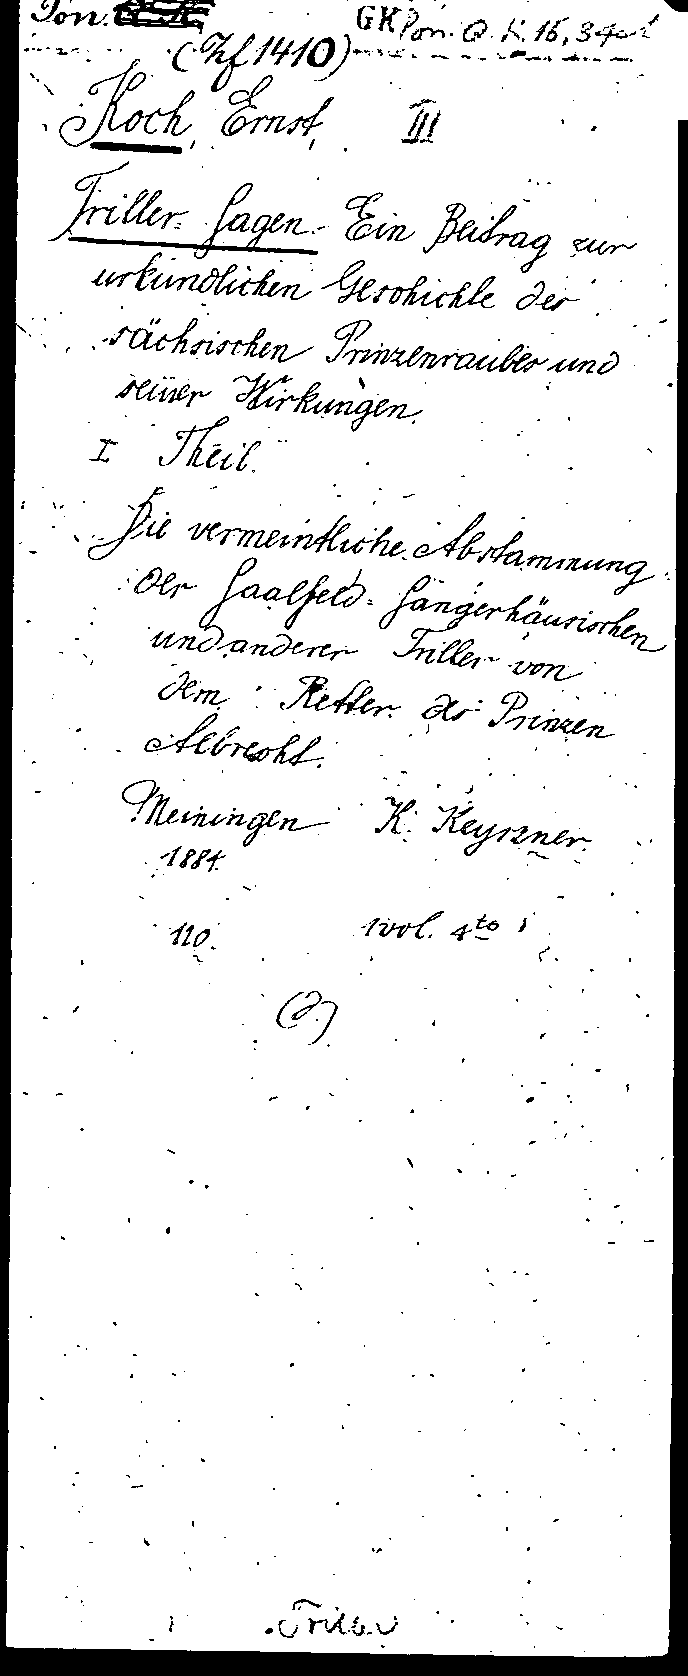 Pon.
GK Pon. Q. K. 15, 34
(Zf 1410)
Koch, Ernst, III
Triller-Sagen. Ein Beitrag zur
urkundlichen Geschichte des
sächsischen Prinzenraubes und
seiner Wirkungen.
I Theil.
Die vermeintliche Abstammung
der Saalfeld-Sangerhäusischen
und anderer Triller von
dem Retter des Prinzen
Albrecht.
Meiningen K. Keyszner.
1884.
110. 1 vol. 4to
(d)
Triller